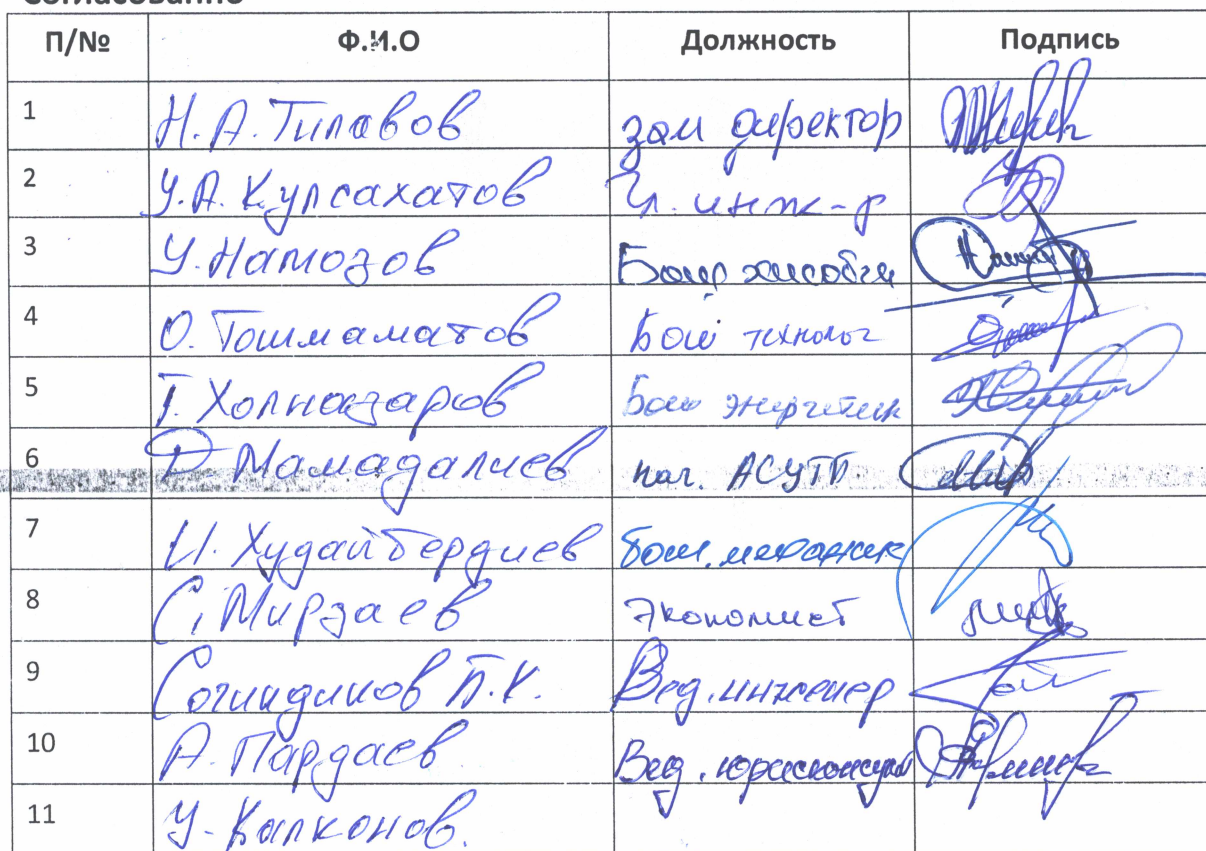 Согласованно
П/№ Ф.И.О Должность Подпись
1 Н.А.Тилавов зам директор
2 У.А.Кулсахатов Гл. инж-р
3 У.Намозов Бош хисобчи
4 О. Тошмаматов Бош технолог
5 Т. Холназаров Бош энергетик
6 Д Мамадалиев нач. АСУТП
7 И. Худайбердиев бош. механик
8 С. Мирзаев Экономист
9 П.Х. Вед. инженер
10 А. Пардаев Вед. юрисконсульт
11 У. Калконов.